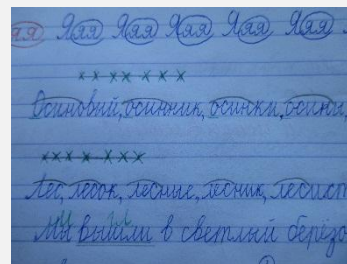 яя Яяя Яяя Яяя Яяя Яяя
× × ×× × × ×
Осиновый, осинник, осинки, осины,
××× × ×××
Лес, лесок, лесные, лесник, лесист
Мы вышли в светлый берёзо